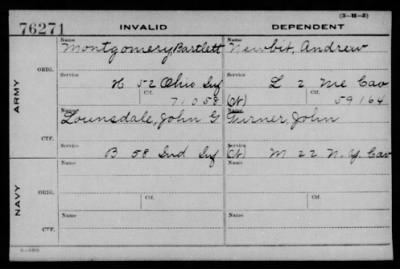 (3-H-2)
76271 INVALID DEPENDENT
Name Name
Montgomery Bartlett Newbit, Andrew
ARMY
ORIG.
Service Service
H 52 Ohio Inf L 2 Me Cav
Ctf. Ctf.
71058 (Ct) 59164
Name Name
Lounsdale, John G Turner, John
CTF.
Service Service
B 58 Ind Inf (Ct) M 22 N.Y. Cav
NAVY
ORIG.
Name Name
Service Ctf. Service Ctf.
CTF.
Name Name
Service Service